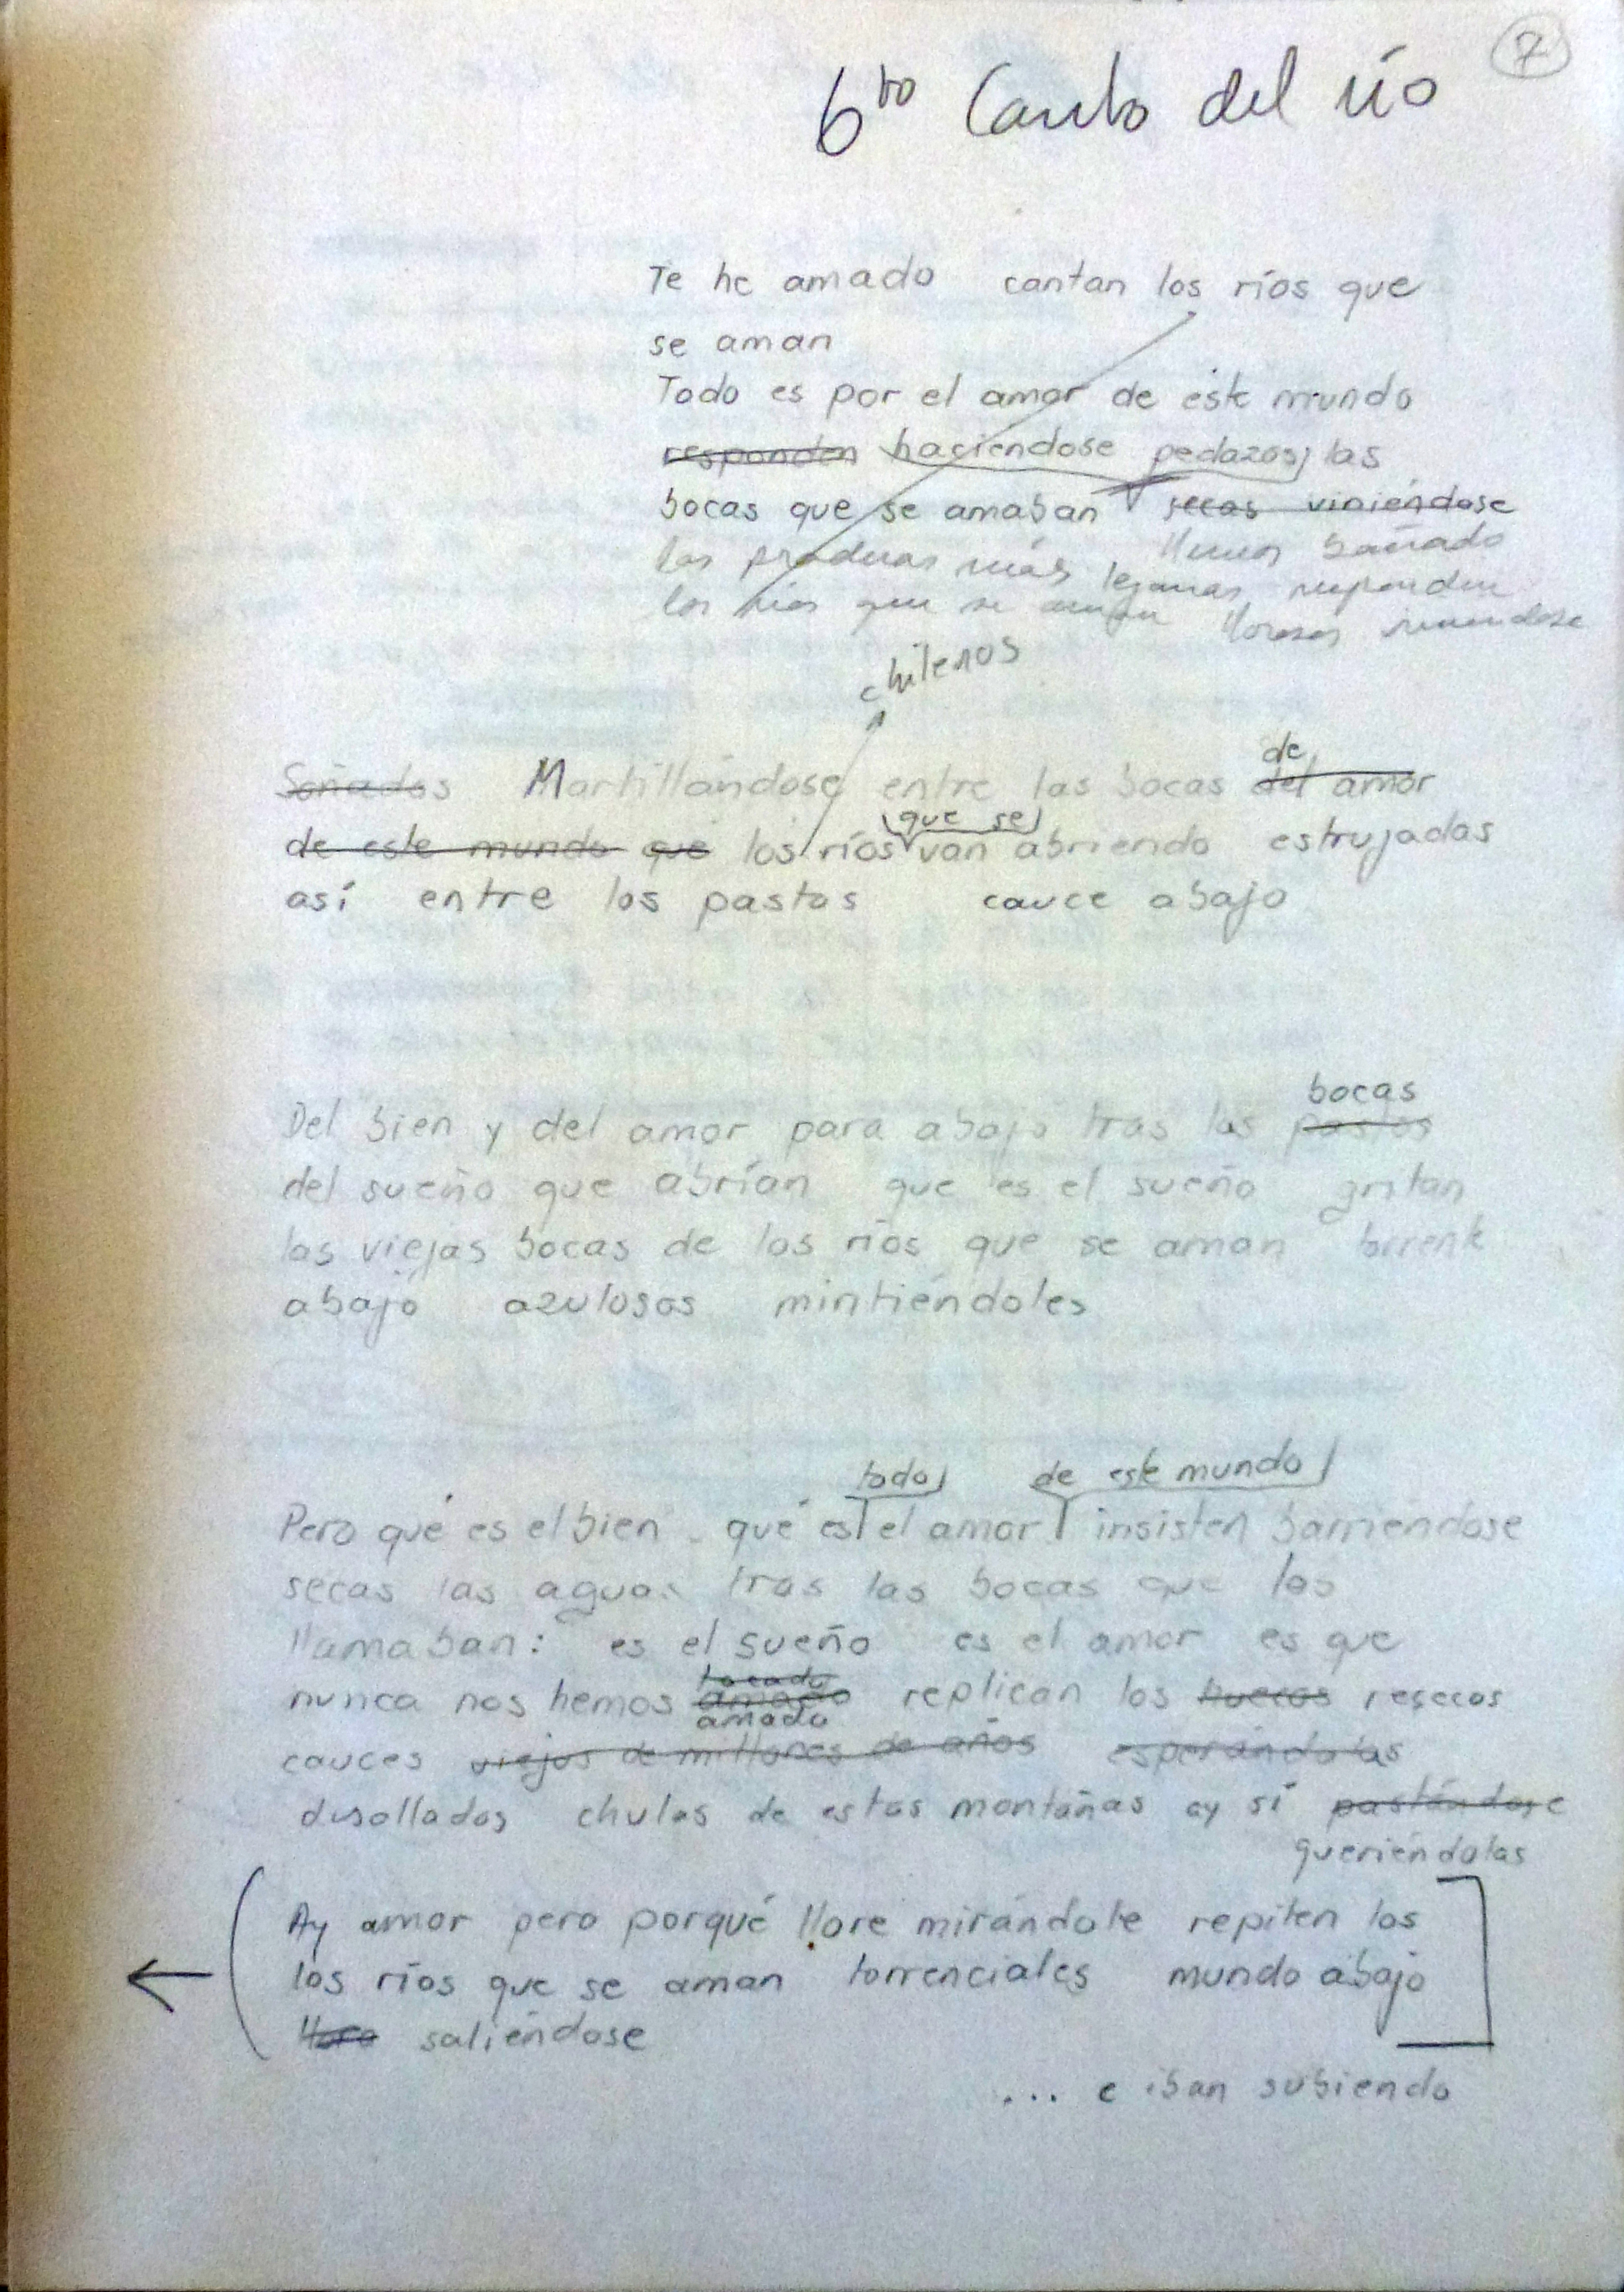 7
6to Canto del río
Te he amado cantan los ríos que
se aman
Todo es por el amor de este mundo
responden haciéndose pedazos las
bocas que se amaban secas viniéndose
las praderas más lejanas responden
los ríos que se aman
chilenos
de
Soñados Martillándose entre las bocas del amor
que se
de este mundo que los ríos van abriendo estrujadas
así entre los pastos cauce abajo
bocas
Del bien y del amor para abajo tras las pastos
del sueño que abrían que es el sueño gritan
las viejas bocas de los ríos que se aman torrente
abajo azulosos mintiéndoles
todo de este mundo
Pero qué es el bien qué es el amor insisten barriéndose
secas las aguas tras las bocas que las
llamaban: es el sueño es el amor es que
tocado
nunca nos hemos amado replican los huecos resecos
amado
cauces viejos de millones de años esperándolas
desollados chulos de estas montañas ay sí pastándose
queriéndolas
Ay amor pero porqué llore mirándote repiten los
los ríos que se aman torrenciales mundo abajo
lloro saliéndose
... e iban subiendo